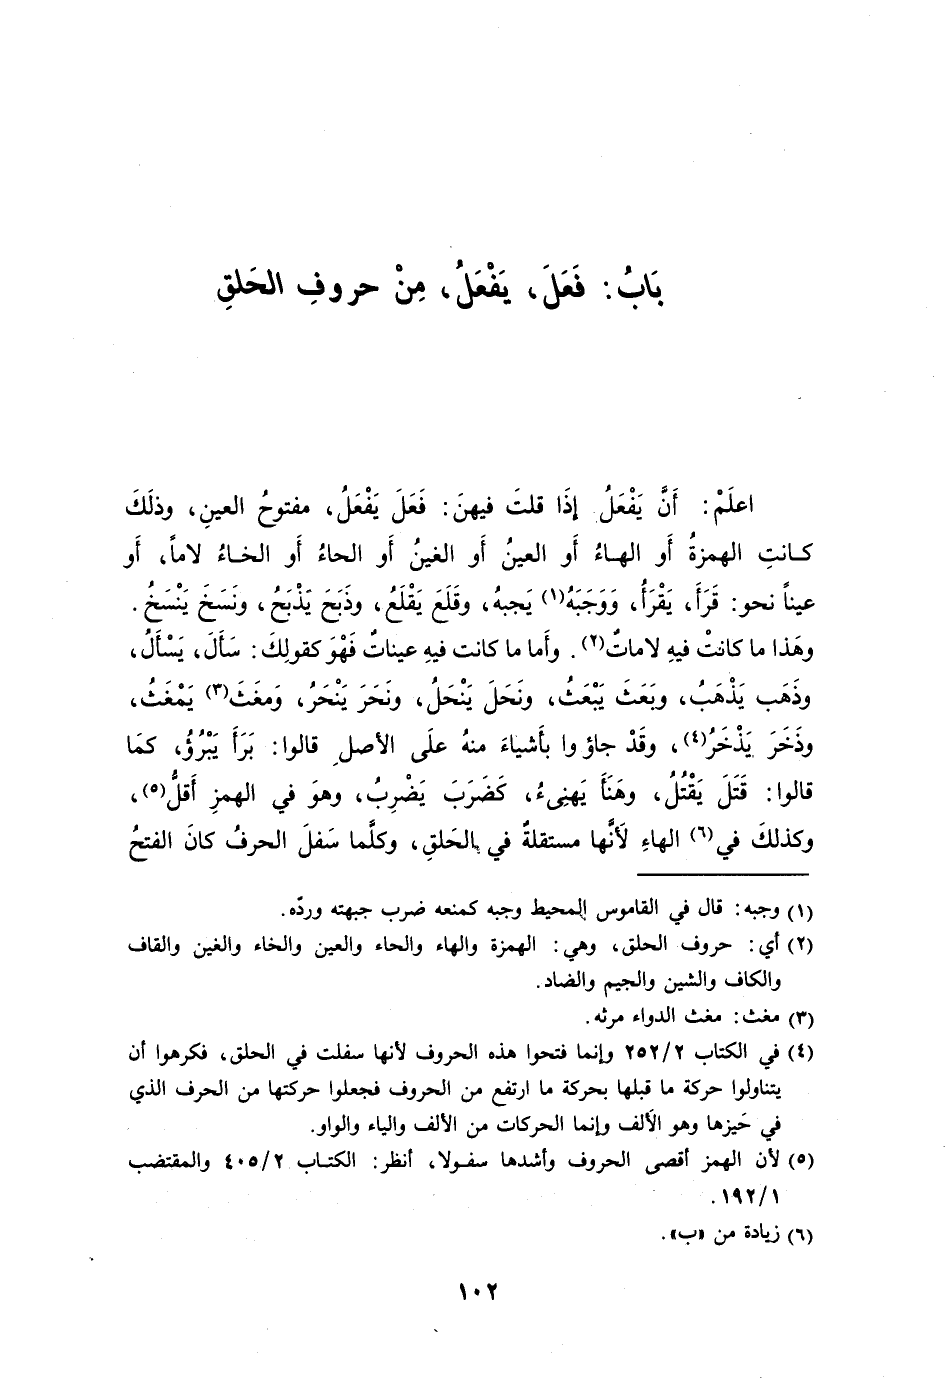 بَابُ: فَعَلَ، يَفْعَلُ، مِنْ حروفِ الحَلقِ
اعلَمْ: أَنَّ يَفْعَلُ إذَا قلتَ فيهنَ: فَعَلَ يَفْعَلُ، مفتوحُ العينِ، وذلَكَ
كانتِ الهمزةُ أَو الهاءُ أَو العينُ أَو الغينُ أَو الحاءُ أَو الخاءُ لاماً، أَو
عيناً نحو: قَرَأَ، يَقْرَأُ، وَوَجَبَهُ(١) يَجبهُ، وقلَعَ يَقْلَعُ، وذبَحَ يَذْبَحُ، ونَسَخَ يَنْسَخُ.
وهَذا ما كانتْ فيهِ لاماتٌ(٢). وأَما ما كانت فيهِ عيناتٌ فَهْوَ كقولِكَ: سَأَلَ، يَسْأَلُ،
وذَهَب يَذْهَبُ، وبَعَثَ يَبْعَثُ، ونَحَلَ يَنْحَلُ، ونَحَرَ يَنْحَرُ، وَمغَثَ(٣) يَمْغَثُ،
وذَخَرَ يَذْخَرُ(٤)، وقَدْ جاؤوا بأَشياءَ منهُ علَى الأَصلِ قالوا: بَرَأَ يَبْرُؤُ، كمَا
قالوا: قَتَلَ يَقْتُلُ، وهَنَأَ يَهنِىءُ، كَضَرَبَ يَضْرِبُ، وهوَ في الهمزِ أَقلُّ(٥)،
وكذلكَ في(٦) الهاءِ لأَنَّها مستقلةٌ في الحَلقِ، وكلَّما سَفلَ الحرفُ كانَ الفتحُ
(١) وجبه: قال في القاموس المحيط وجبه كمنعه ضرب جبهته وردّه.
(٢) أي: حروف الحلق، وهي: الهمزة والهاء والحاء والعين والخاء والغين والقاف
والكاف والشين والجيم والضاد.
(٣) مغث: مغث الدواء مرثه.
(٤) في الكتاب ٢٥٢/٢ وإنما فتحوا هذه الحروف لأنها سفلت في الحلق، فكرهوا أن
يتناولوا حركة ما قبلها بحركة ما ارتفع من الحروف فجعلوا حركتها من الحرف الذي
في حَيزها وهو الأَلف وإنما الحركات من الألف والياء والواو.
(٥) لأن الهمز أقصى الحروف وأشدها سفولا، أنظر: الكتاب ٤٠٥/٢ والمقتضب
١٩٢/١.
(٦) زيادة من «ب».
١٠٢